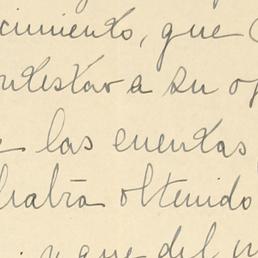 cimiento, que
ontestar a su op
las cuentas
habrá obtenido
y que del